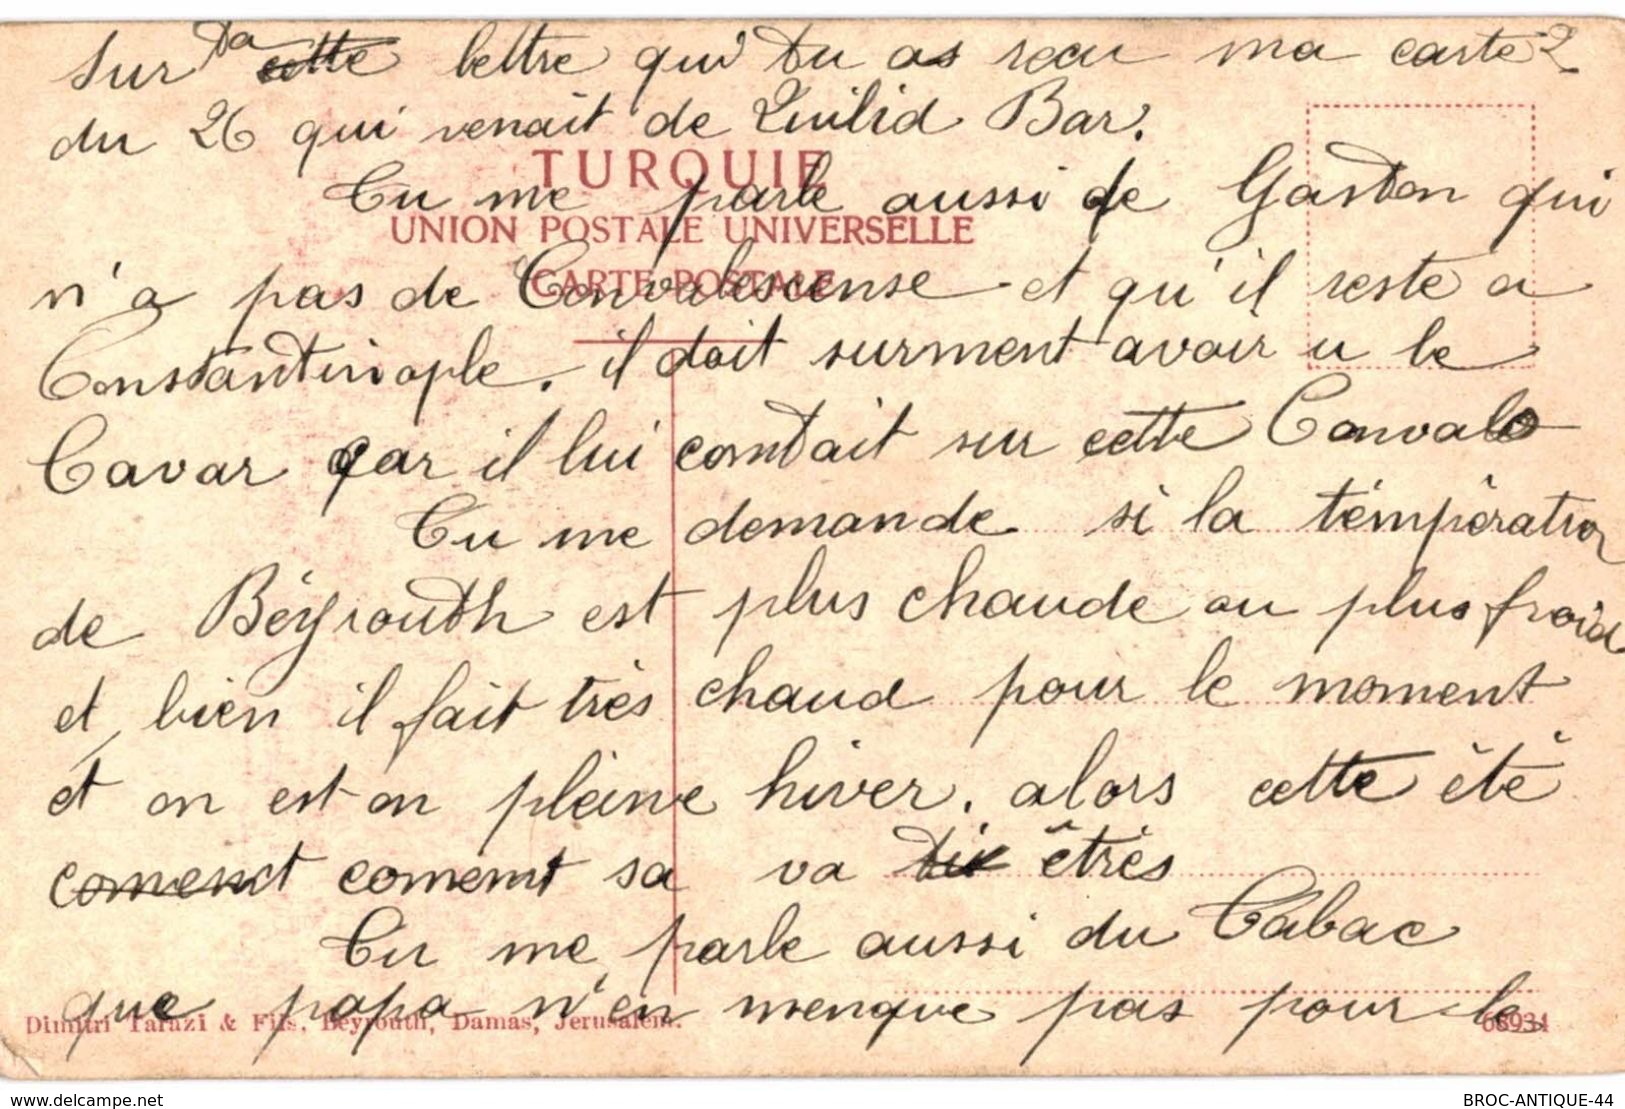 Sur ta cette lettre qui tu as recu ma carte 2
du 26 qui venait de Quilid Bar.
TURQUIE
Tu me parle aussi de Gaston qui
UNION POSTALE UNIVERSELLE
n'a pas de Convalescense et qu'il reste a
CARTE POSTALE
Constantinople. il doit surment avoir u le
Cavar qar il lui comtait sur cette Convalo
Tu me demande si la témpératur
de Béyrouth est plus chaude ou plus froid
et bien il fait très chaud pour le moment
et on est on pleine hiver. alors cette été
comenct coment sa va êtrès
Tu me parle aussi du Tabac
que papa n'en menque pas pour le
Dimitri Tarazi & Fils, Beyrouth, Damas, Jerusalem.
68931
delcampe.net
BROC-ANTIQUE-44